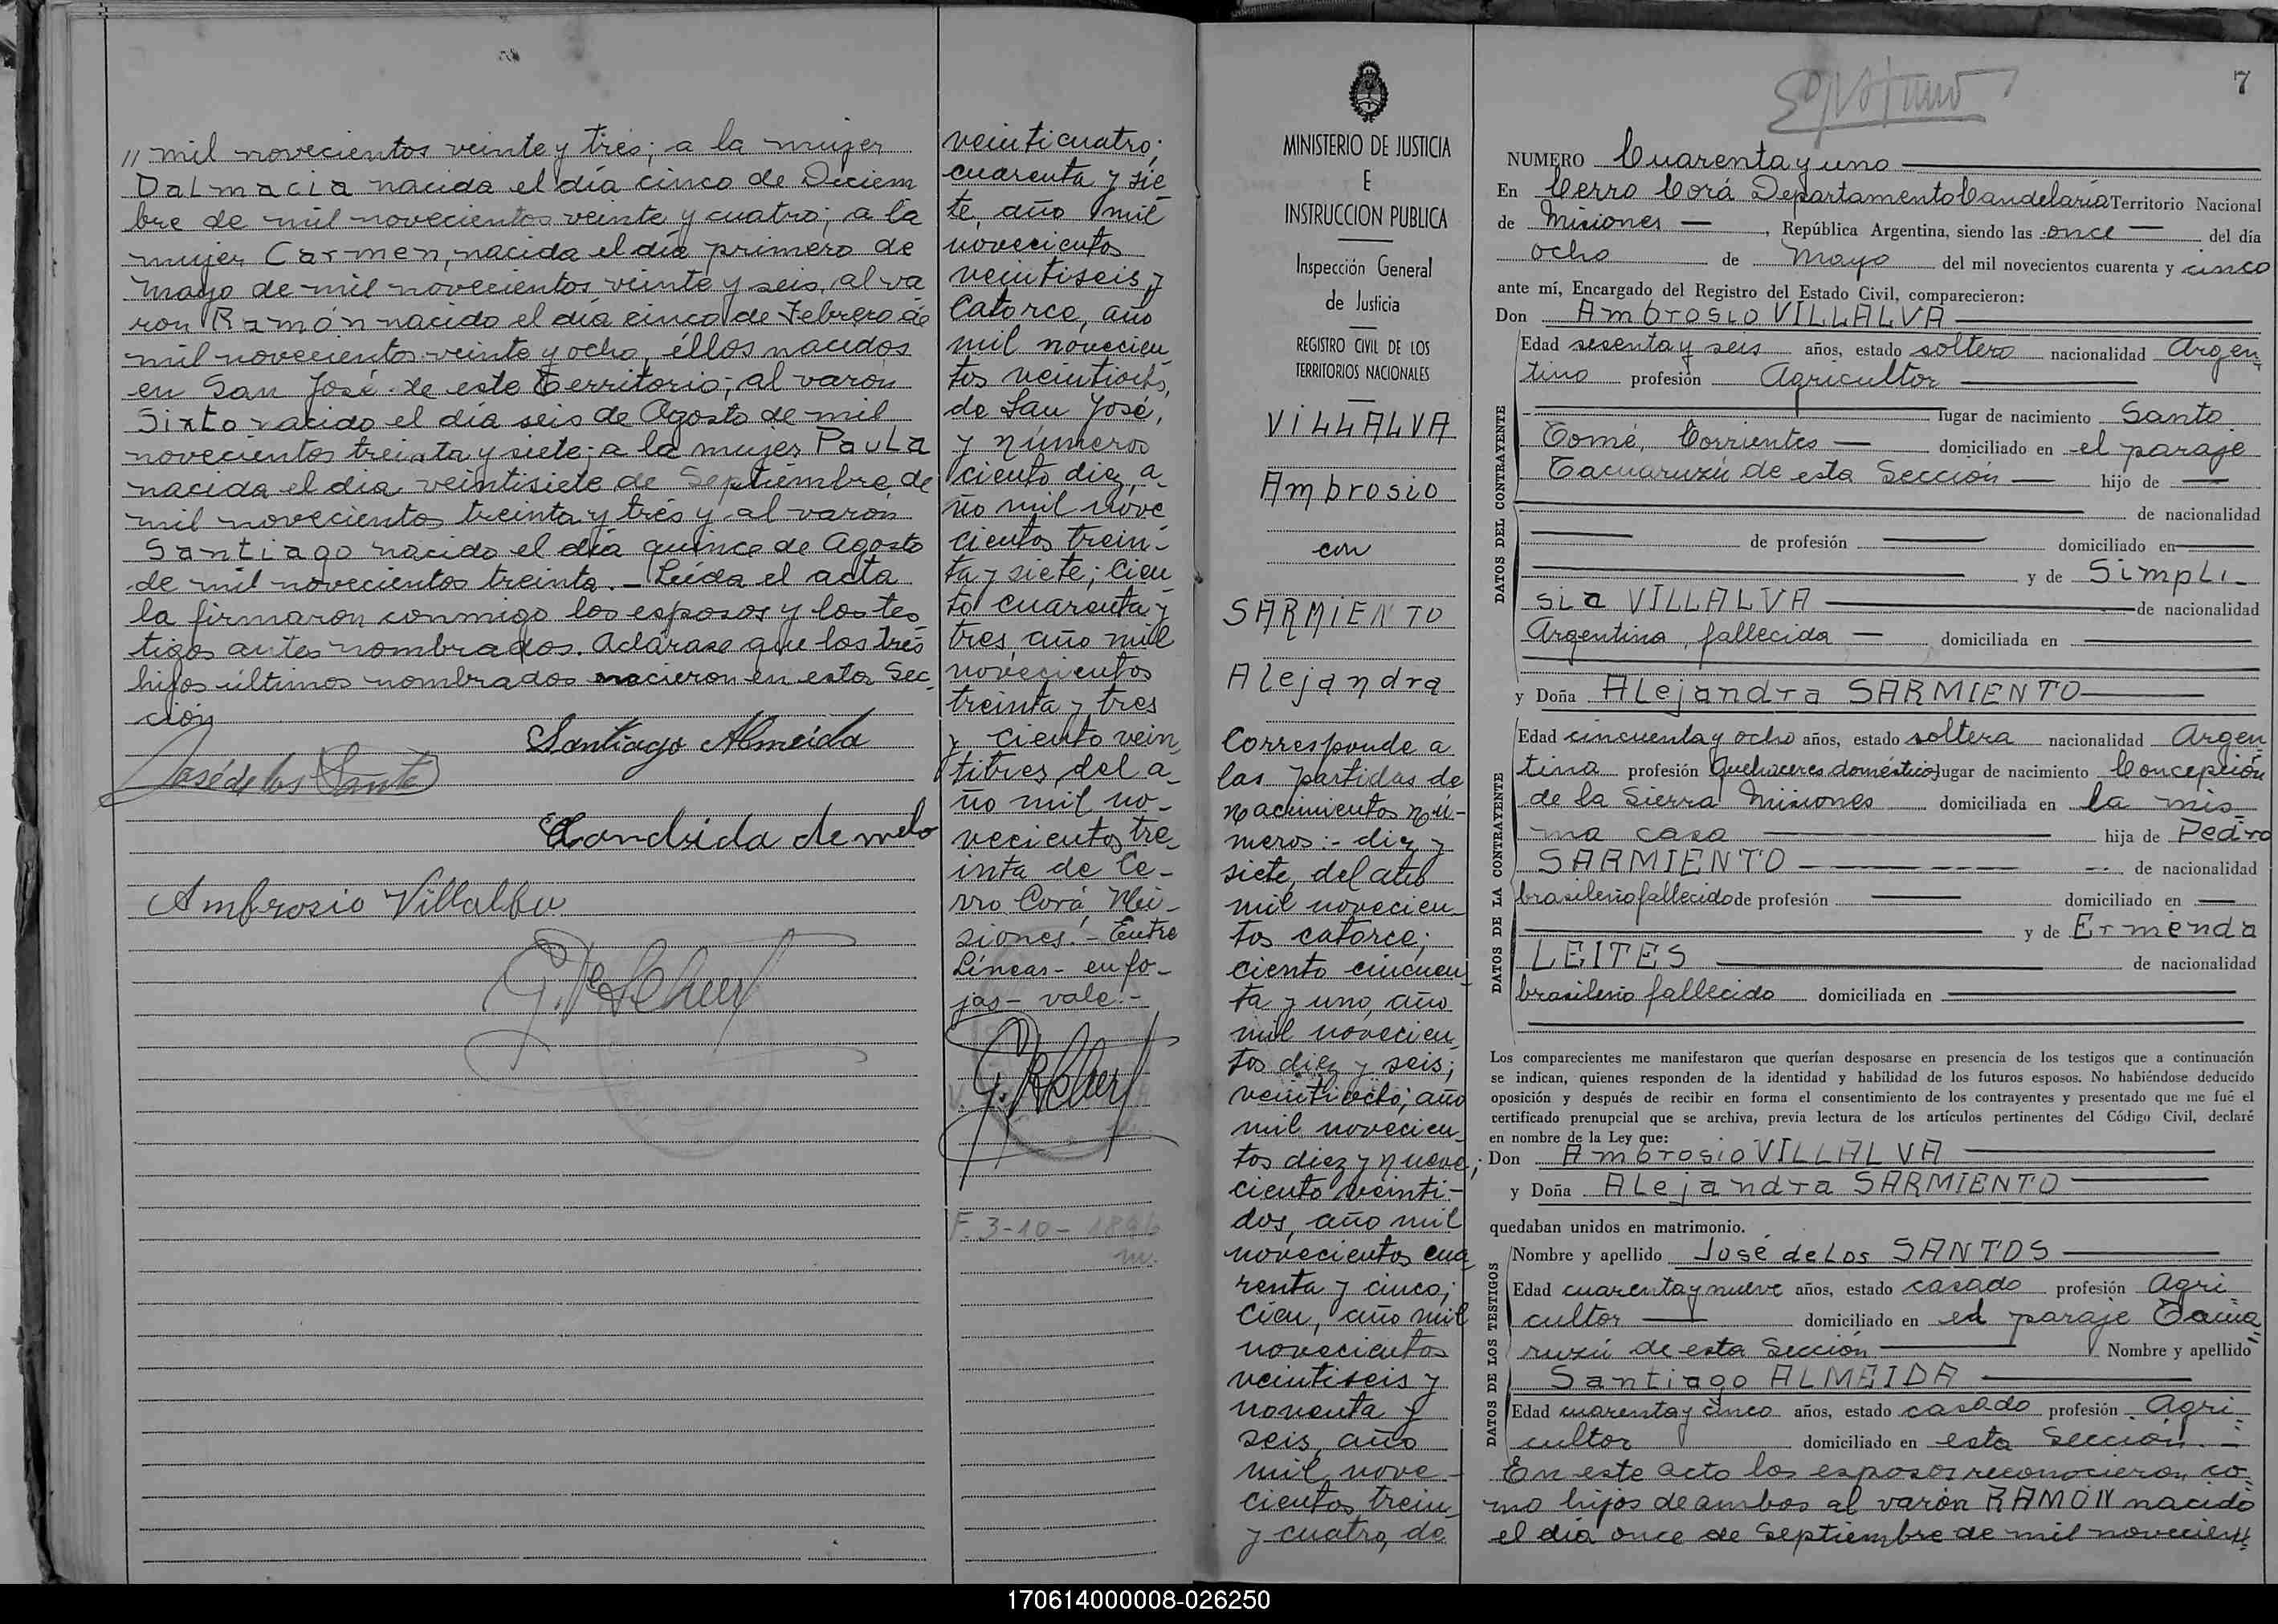 " mil novecientos veinte y tres; a la mujer
Dalmacia nacida el día cinco de Diciem
bre de mil novecientos veinte y cuatro; a la
mujer Carmen, nacida el día primero de
Mayo de mil novecientos veinte y seis, al va
ron Ramón nacido el día cinco de Febrero de
mil novecientos veinte y ocho, éllos nacidos
en San José de este Territorio; al varón
Sixto nacido el día seis de Agosto de mil
novecientos treinta y siete; a la mujer Paula
nacida el día veintisiete de Septiembre de
mil novecientos treinta y trés y al varón
Santiago nacido el día quince de Agosto
de mil novecientos treinta. - Leída el acta
la firmaron conmigo los esposos y los tes
tigos antes nombrados. Aclárase que los trés
hijos últimos nombrados nacieron en esta Sec
ción
Santiago Almeida
José de los Santos
Candida de melo
Ambrosio Villalba
veinticuatro;
cuarenta y sie
te, año mil
novecientos
veintiseis y
Catorce, año
mil novecien
tos veintiocho,
de San José,
y números
ciento diez, a-
ño mil nove
cientos trein-
ta y siete; cien
to cuarenta y
tres, año mil
novecientos
treinta y tres
y ciento vein
titres, del a-
ño mil no-
vecientos tre-
inta de Ce-
rro Corá, Mi-
siones. - Entre
Líneas - en fo-
jas - vale. -
F. 3-10-1896
m.
MINISTERIO DE JUSTICIA
E
INSTRUCCION PUBLICA
Inspección General
de Justicia
REGISTRO CIVIL DE LOS
TERRITORIOS NACIONALES
VILLALVA
Ambrosio
con
SARMIENTO
Alejandra
Corresponde a
las partidas de
nacimientos nú-
meros: - diez y
siete, del año
mil novecien
tos catorce;
ciento cincuen
ta y uno, año
mil novecien
tos diez y seis;
veintiocho; año
mil novecien
tos diez y nueve;
ciento veinti-
dos, año mil
novecientos cua
renta y cinco;
cien, año mil
novecientos
veintiseis y
noventa y
seis, año
mil nove-
cientos trein
y cuatro, de
7
NUMERO Cuarenta y uno
En Cerro Corá Departamento Candelaria Territorio Nacional
de Misiones, República Argentina, siendo las once del día
ocho de Mayo del mil novecientos cuarenta y cinco
ante mí, Encargado del Registro del Estado Civil, comparecieron:
Don Ambrosio VILLALVA
DATOS DEL CONTRAYENTE
Edad sesenta y seis años, estado soltero nacionalidad Argen
tino profesión Agricultor
lugar de nacimiento Santo
Tomé, Corrientes domiciliado en el paraje
Tacuaruzú de esta Sección hijo de
de nacionalidad
de profesión domiciliado en
y de Simpli-
sia VILLALVA de nacionalidad
Argentina, fallecida domiciliada en
y Doña Alejandra SARMIENTO
DATOS DE LA CONTRAYENTE
Edad cincuenta y ocho años, estado soltera nacionalidad Argen
tina profesión Quehaceres domésticos lugar de nacimiento Concepción
de la Sierra Misiones domiciliada en la mis
ma casa hija de Pedro
SARMIENTO de nacionalidad
brasileño fallecido de profesión domiciliado en
y de Ermenda
LEITES de nacionalidad
brasileño fallecido domiciliada en
Los comparecientes me manifestaron que querían desposarse en presencia de los testigos que a continuación
se indican, quienes responden de la identidad y habilidad de los futuros esposos. No habiéndose deducido
oposición y después de recibir en forma el consentimiento de los contrayentes y presentado que me fué el
certificado prenupcial que se archiva, previa lectura de los artículos pertinentes del Código Civil, declaré
en nombre de la Ley que:
Don Ambrosio VILLALVA
y Doña Alejandra SARMIENTO
quedaban unidos en matrimonio.
DATOS DE LOS TESTIGOS
Nombre y apellido José de Los SANTOS
Edad cuarenta y nueve años, estado casado profesión Agri
cultor domiciliado en el paraje Tacua
ruzú de esta Sección Nombre y apellido
Santiago ALMEIDA
Edad cuarenta y cinco años, estado casado profesión Agri
cultor domiciliado en esta Sección. -
En este acto los esposos reconocieron co
mo hijos de ambos al varón RAMÓN nacido
el día once de Septiembre de mil novecient
170614000008-026250